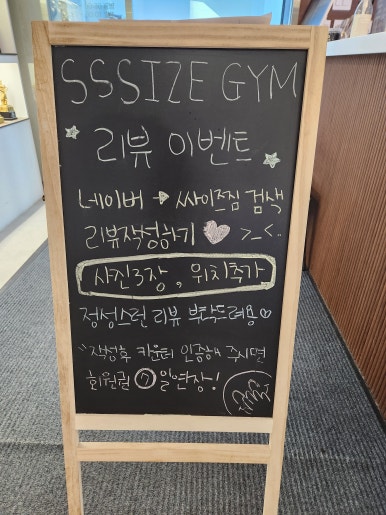 SSSIZE GYM
리뷰 이벤트
네이버 → 싸이즈짐 검색
리뷰작성하기 ♥ >_<..
사진3장, 위치추가
정성스런 리뷰 부탁드려용♡
"작성후 카운터 인증해 주시면
회원권 7일연장!